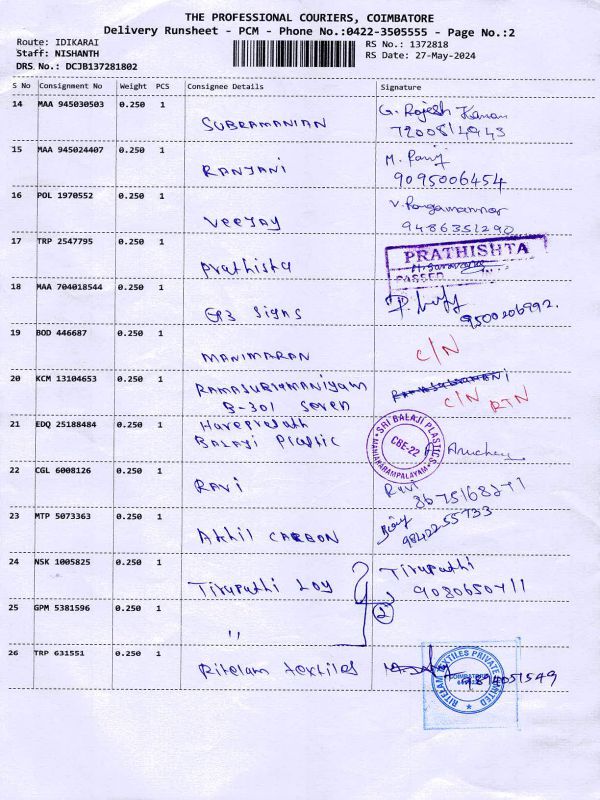 THE PROFESSIONAL COURIERS, COIMBATORE
Delivery Runsheet - PCM - Phone No.:0422-3505555 - Page No.:2
Route: IDIKARAI
RS No.: 1372818
Staff: NISHANTH
RS Date: 27-May-2024
DRS No.: DCJB137281802
S No Consignment No Weight PCS Consignee Details Signature
14 MAA 945030503 0.250 1 SUBRAMANIAN G. Rajesh Kannan
7200814943
15 MAA 945024407 0.250 1 RANJANI M. Ranj
9095006454
16 POL 1970552 0.250 1 VEEJAY V. Rangamannar
9486351290
17 TRP 2547795 0.250 1 Prathista PRATHISHTA
PASSED
18 MAA 704018544 0.250 1 GP3 Signs
9500206992.
19 BOD 446687 0.250 1 MANIMARAN C/N
20 KCM 13104653 0.250 1 RAMASUBRAMANIYAM
B-301 Seven C/N RTN
21 EDQ 25188484 0.250 1 Hareprasath
BALAJI Plastic SRI BALAJI PLASTICS
CBE-22
MANIAKARAMPALAYAM
22 CGL 6008126 0.250 1 RAVI Ravi
23 MTP 5073363 0.250 1 Akhil CARBON
24 NSK 1005825 0.250 1 Tirupathi Loy Tirupathi
9080650411
25 GPM 5381596 0.250 1 " 2
26 TRP 631551 0.250 1 Ritelam textiles 9894051549
RITELAM TEXTILES PRIVATE LIMITED
COIMBATORE